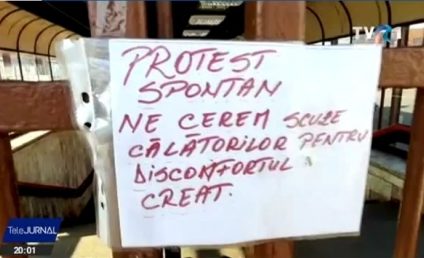 TVR 1
PROTEST
SPONTAN
NE CEREM SCUZE
CĂLĂTORILOR PENTRU
DISCONFORTUL
CREAT.
TeleJURNAL
20:01